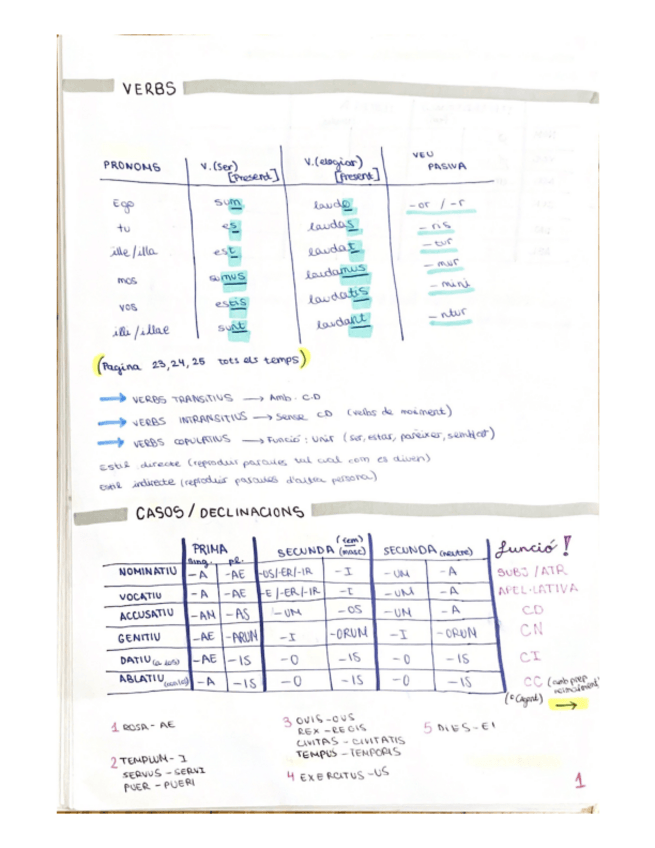 VERBS
PRONOMS V.(ser) [Present] V.(elogiar) [Present] VEU PASIVA
Ego sum laudo -or / -r
tu es laudas -ris
ille/illa est laudat -tur
nos sumus laudamus -mur
vos estis laudatis -mini
illi/illae sunt laudant -ntur
(Pagina 23,24,25 tots els temps)
→ VERBS TRANSITIUS → Amb CD
→ VERBS INTRANSITIUS → Sense CD (verbs de moviment)
→ VERBS COPULATIUS → Funció: Unir (ser, estar, parèixer, semblar)
Estil directe (reproduir paraules tal cual com es diven)
Estil indirecte (reproduir paraules d'altra persona)
CASOS / DECLINACIONS
PRIMA SECUNDA (fem) (masc) SECUNDA (neutre) funció!
sing. pl.
NOMINATIU -A -AE -US/-ER/-IR -I -UM -A SUBJ/ATR
VOCATIU -A -AE -E/-ER/-IR -I -UM -A APEL·LATIVA
ACCUSATIU -AM -AS -UM -OS -UM -A CD
GENITIU -AE -ARUM -I -ORUM -I -ORUM CN
DATIU -AE -IS -O -IS -O -IS CI
ABLATIU -A -IS -O -IS -O -IS CC (amb prep
→
1 ROSA - AE
2 TEMPLUM - I
SERVUS - SERVI
PUER - PUERI
3 OVIS - OVIS
REX - REGIS
CIVITAS - CIVITATIS
TEMPUS - TEMPORIS
4 EXERCITUS - US
5 DIES - EI
1